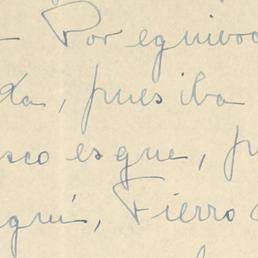 - Por equivoc
da, pues iba
sco es que, p
quí, Fierro